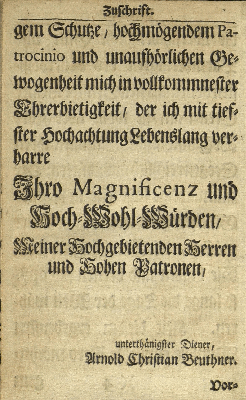 Zuschrift.
gem Schutze / hochmögendem Pa-
trocinio und unaufhörlichen Ge-
wogenheit mich in vollkommnester
Ehrerbietigkeit, der ich mit tief-
ster Hochachtung Lebenslang ver-
harre
Ihro Magnificenz und
Hoch-Wohl-Würden,
Meiner Hochgebietenden Herren
und Hohen Patronen,
unterthänigster Diener,
Arnold Christian Beuthner.
Vor-